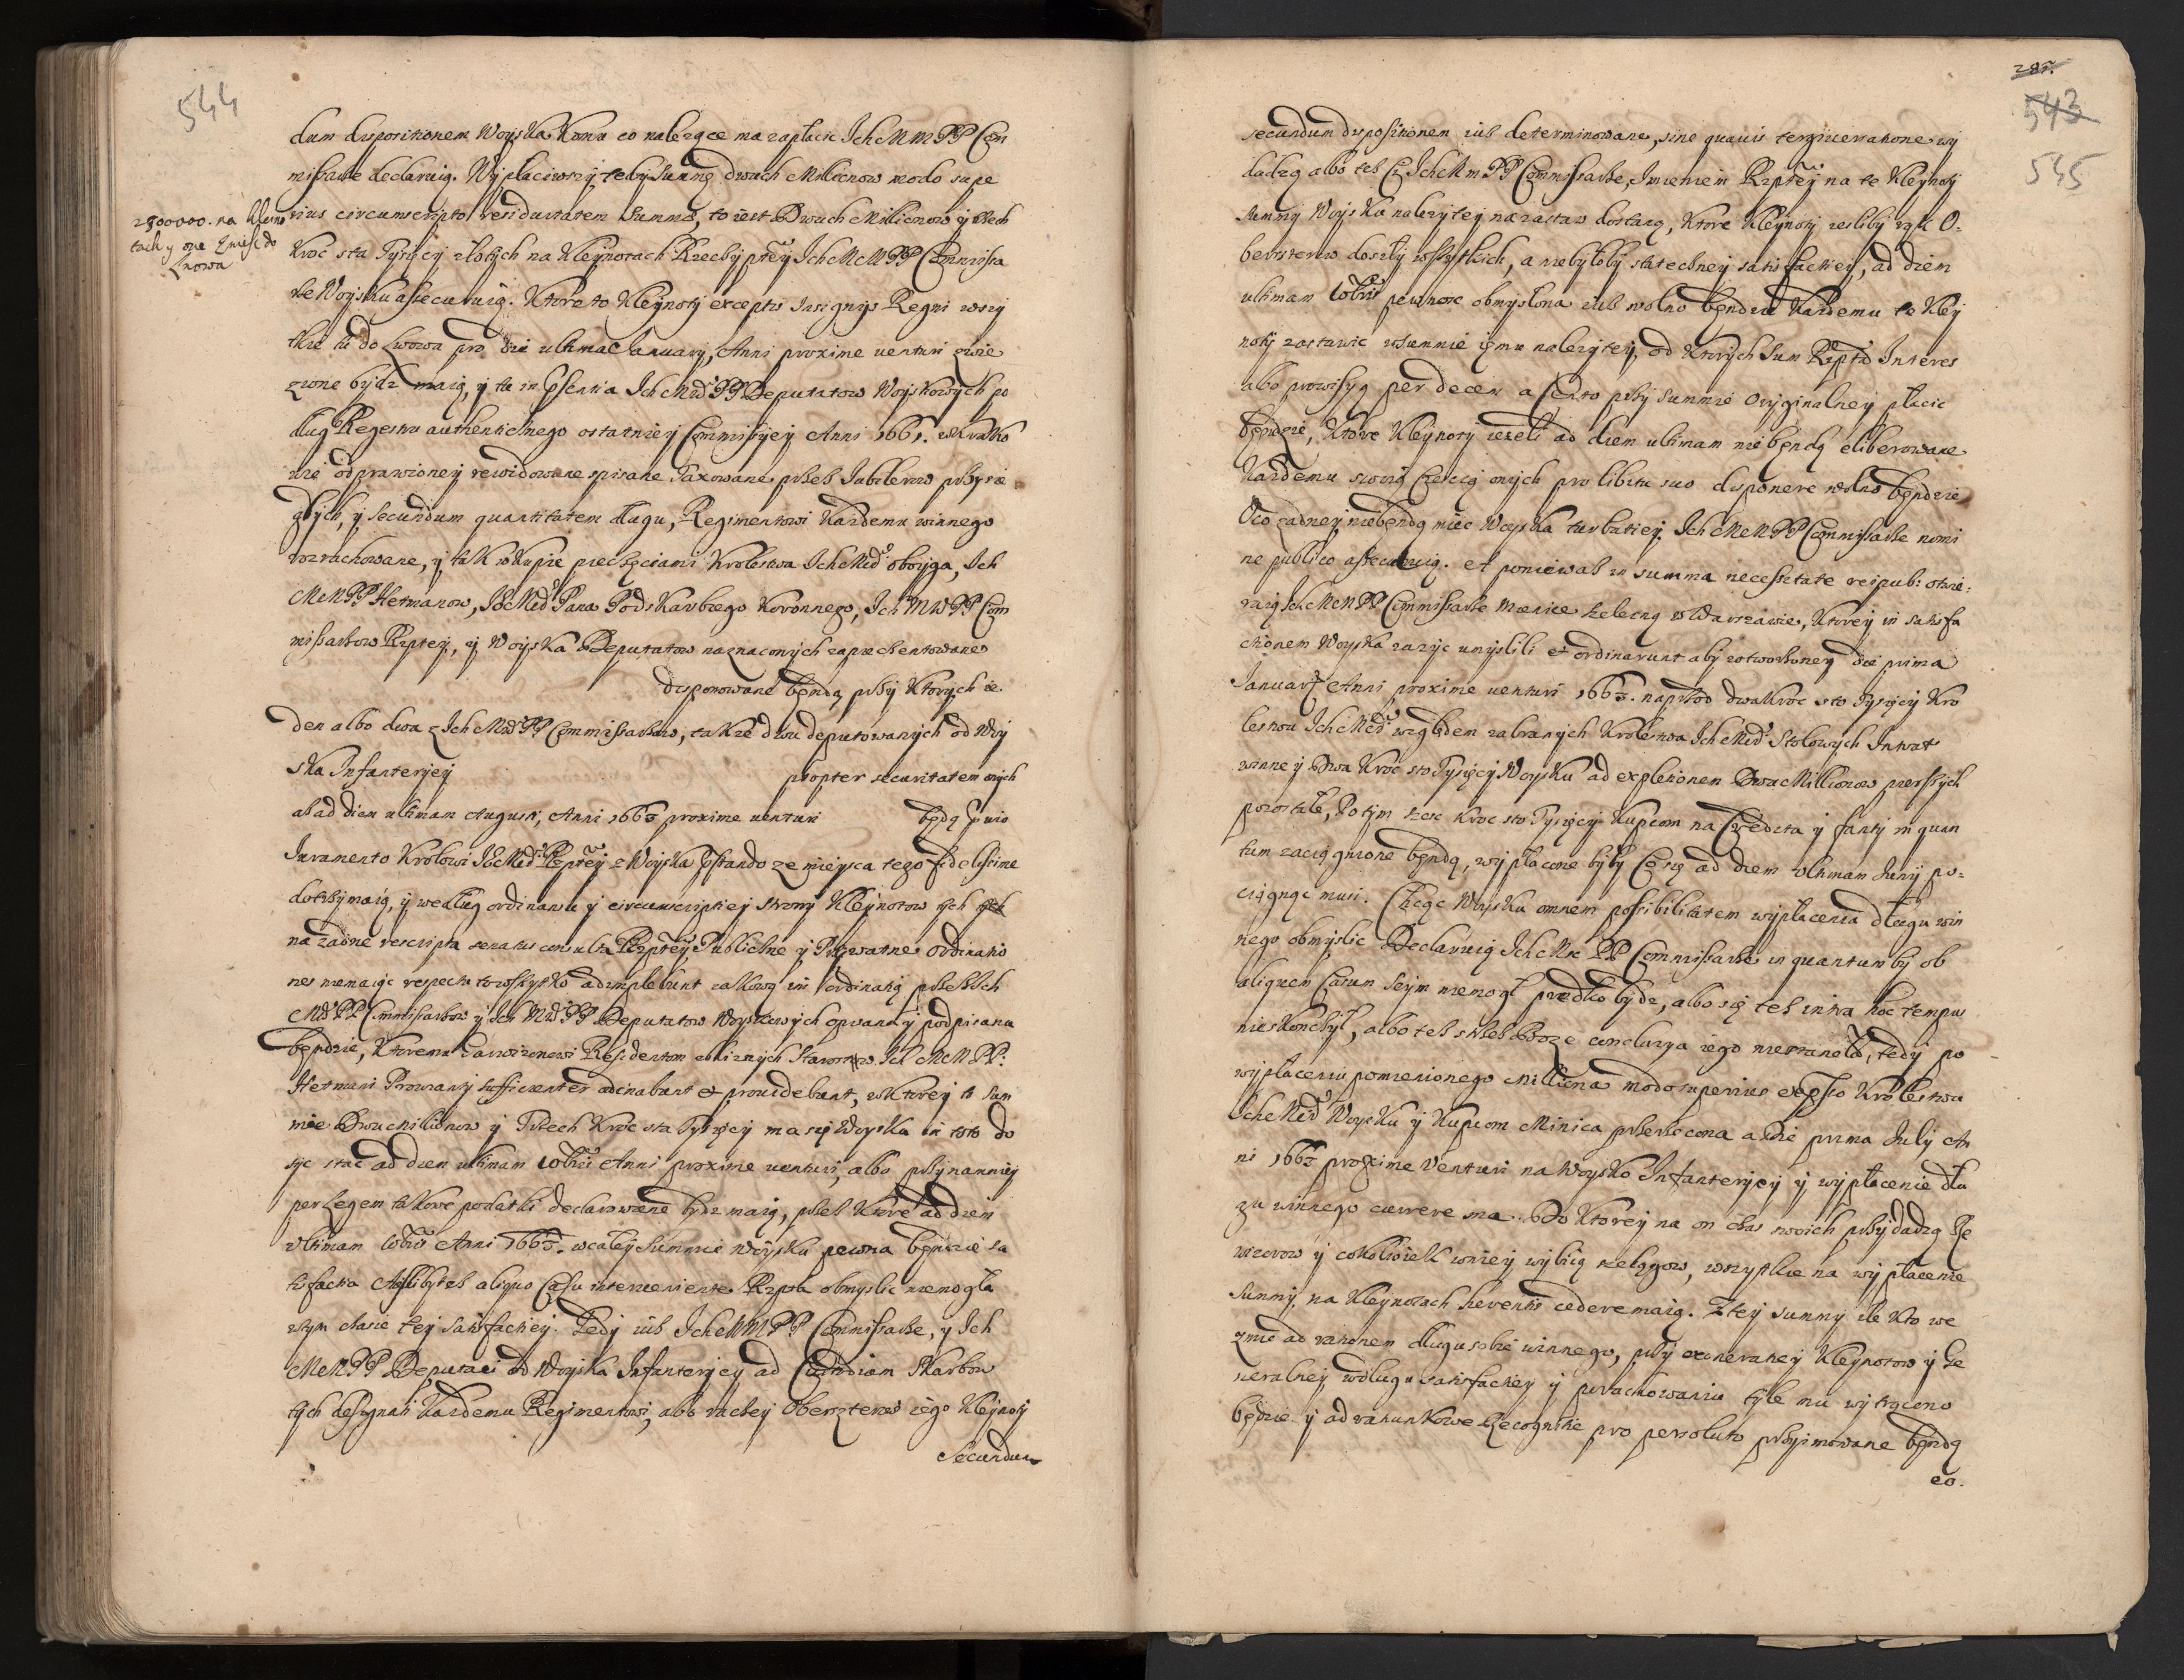 544
dum dispositionem Woyska komu co nalezące ma zapłacic Ich M M PP Com
missarze declaruią. Wypłaciwszy tedy Summę dwuch Millionow modo supe
rius circumscripto residuitatem Summæ, to iest Dwuch Millionow y trzech
2300000. na kleyno
tach y one zwiesc do
Lwowa
kroc sta Tysięcy złotych na kleynotach Rzeczyptey Ich McM PP Commissa
rze Woysku assecuruią. Ktore to kleynoty exceptis Insignijs Regni wszy
tkie tu do Lwowa pro die ultima Ianuarij, Anni proxime venturi zwie
zione bydz maią, y tu in pñtia Ich Mśċ PP Deputatow Woyskowych po
dług Regestru authenticznego ostatniey Commissyey Anni 1661. w Krako
wie odprawioney rewidowane spisane Taxowane przez Jubilerow przysię
głych, y secundum quantitatem długu, Regimentowi każdemu winnego
rozrachowane, y tak w kupie pieczęciami Krolestwa Ich Mśċi oboyga, Ich
McM PP Hetmanow, JEMśċi Pana Podskarbiego Koronnego, Ich MM PP Com
missarzow Rzptey, y Woyska Deputatow naznaczonych zapieczentowane
disponowane będą przy ktorych ie
den albo dwa z Ich Mśċ PP Commissarzow, takze dwu deputowanych od Woy
ska Infanteryey propter securitatem onych
ab ad diem ultimam Augusti, Anni 1663 proxime venturi będą pnio
Iuramento Krolowi JEMśċi Rzptey z Woyska pstando ze mieysca tego fidelissime
dotrzymaią, y według ordinansu y circumscriptiey strony kleynotow tych
na żadne rescripta senatus consulta Rzptey Publiczne y Prywatne ordinatio
nes niemaiąc respectu to wszytko adimplebunt iakową im ordinatią przez Ich
Mśċ PP Commissarzow y Ich Mśċ PP Deputatow Woyskowych opisaną y podpisaną
będzie, ktoremu Garnizonowi Residentom okolicznych Starostw Ich McM PP.
Hetmani Prowianty sufficienter ordinabunt et providebunt, w ktorey to Sum
mie Dwu milionow y Trzech kroc sta Tysięcy ma się Woysku in toto do
syc stac ad diem ultimam 10bris Anni proxime venturi, albo przynamniey
per legem takowe podatki declarowane bydz maią, przez ktore ad diem
ultimam 10bris Anni 1663. w całey Summie Woysku pewna będzie sa
tisfactia Ajesliby też aliquo Casu interveniente Rzpta obmyslic niemogła
w tym czasie tey satisfactiey. Tedy iuż Ich McM PP Commissarze, y Ich
McM PP Deputaci od Woyska Infanteryey ad Custodiam Skarbow
tych designati każdemu Regimentowi, albo raczey Oberszterowi iego kleynoty
Secundum
287.
543
545
secundum dispositionem iuż determinowane, sine quavis tergiversatione wy
dadzą albo też Ci Ich Mm PP Commissarze, Imieniem Rzptey na te kleynoty
summy Woysku nalezytey na zastaw dostaną, ktore kleynoty iesliby rąk O-
berszterow doszły wszytkich, a niebyłoby statecznej satisfactiey, ad diem
ultimam 10bris pewnosc obmyslona iuż wolno będzie każdemu te kley
noty zastawic w summie iemu nalezytey, od ktorych Sum Rzpta Interes
albo prowisyą per decem a Cento przy Summie Oryginalney płacic
będzie, ktore kleynoty iezeli ad diem ultimam nie będą eliberowane
każdemu swoią częscią onych pro libitu suo disponere wolno będzie
O co zadney niebędą miec Woyska turbatiey, Ich McM PP Commissarze nomi
ne publico assecuruią. et poniewaz in summa necessitate reipub: otwie-
raią Ich McM PP Commissarze Mienice szelezną w Warszawie, ktorey in satisfa
ctionem Woyska zazyc umyslili et ordinarunt aby zotworzoney die prima
Ianuarij Anni proxime venturi 1663. naprzod dwakroc sto Tysięcy Kro
lestwu Ich Mśċi względem zabranych Krolestwa Ich Mśċi Stołowych Intrat
winne y Dwa kroc sto Tysięcy Woysku ad expletionem Dwu Millionow pierszych
pozostałe, Potym szesc kroc sto Tysięcy Kupcom na Credita y fanty in quan
tum zaciągnione będą, wypłacone były Co się ad diem ultimam Iunij po-
ciągnąc musi. Chcąc Woysku omnem possibilitatem wypłacenia długu win
nego obmyslic Declaruią Ich Mm PP Commissarze in quantum by ob
aliquem Casum Seym niemogł prędko bydz, albo się też intra hoc tempus
nieskonczył, albo też strzeż Boze conclusya iego niestanęła, tedy po
wypłaceniu pomienionego Milliona modo superius expsso Krolestwu
Ich Mśċi Woysku y Kupcom Minica przerzeczona a Die prima Iulij An
ni 1663 proxime venturi na Woysko Infanteryey y wypłacenie dłu
gu winnego currere ma. Do ktorey na on czas swoich przydadzą Re
wizorow y cokolwiek w niey wybiią szelągow, wszytkie na wypłacenie
Summy, na kleynotach hærentis cedere maią. Z tey summy ile kto we
zmie ad rationem długu sobie winnego, przy exoneratiey kleynotow y Ge
neralney w długu satisfactiey y porachowaniu tyle mu wytrącono
będzie y ad rahunkowe Recognitie pro persoluto przyimowane będą
eo.